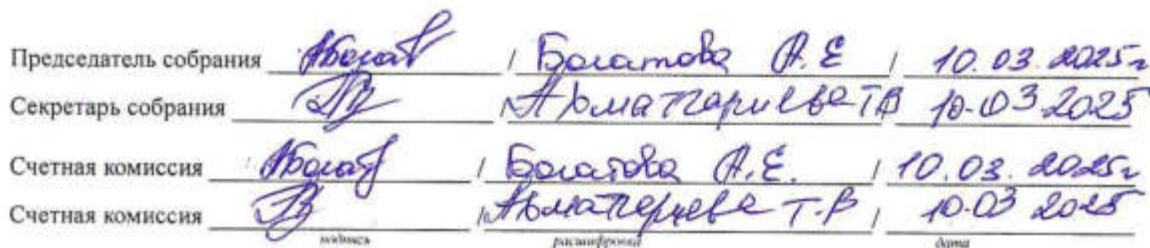 Председатель собрания / Богатова А.Е / 10.03.2025г
Секретарь собрания / Т.В 10.03.2025
Счетная комиссия / Богатова А.Е. / 10.03.2025г
Счетная комиссия / Т.В / 10.03 2025
подпись расшифровка дата